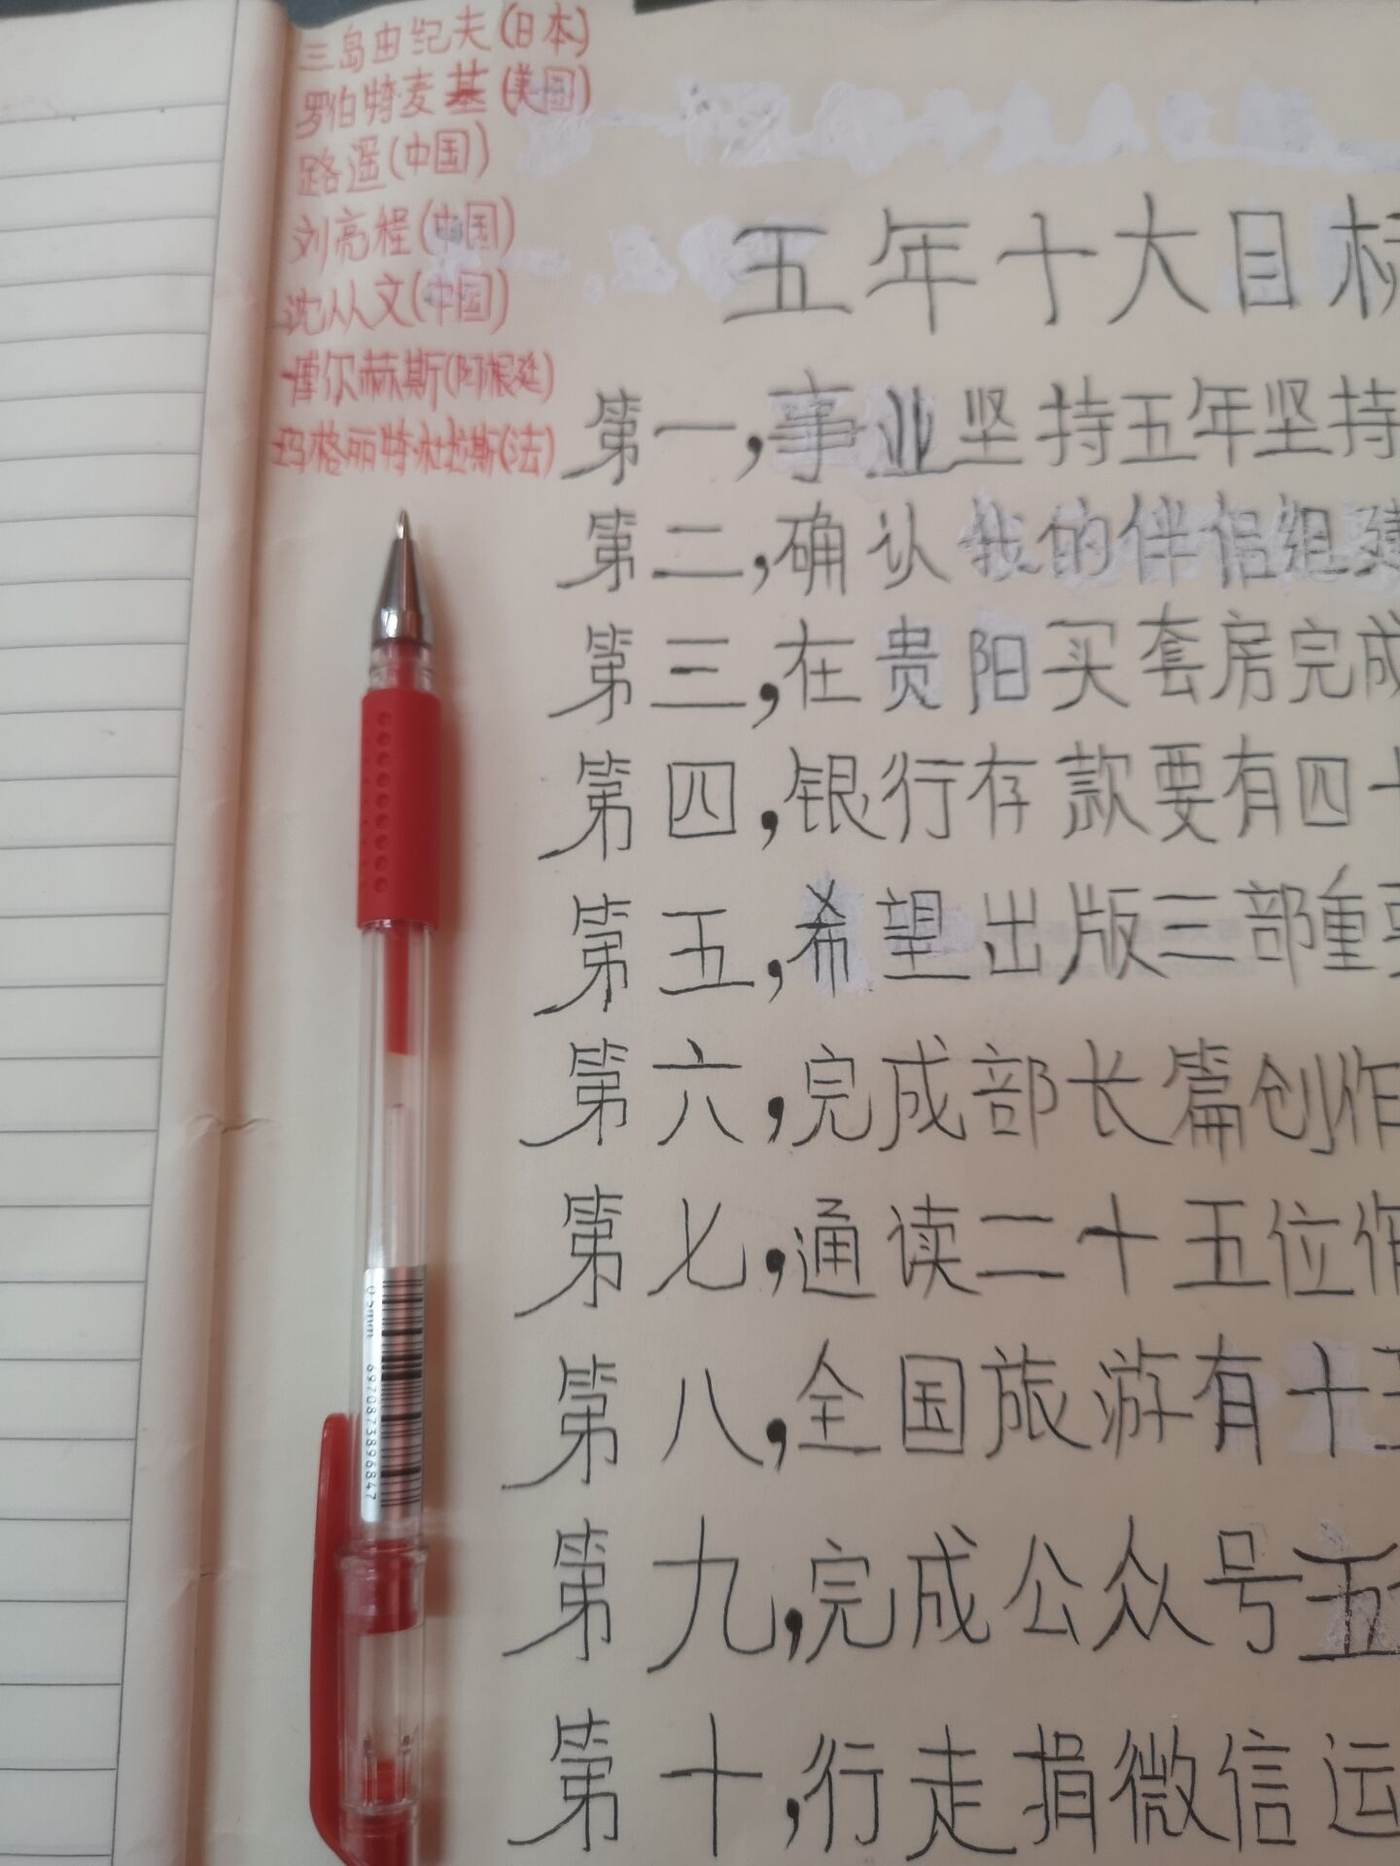 三岛由纪夫(日本)
罗伯特麦基(美国)
路遥(中国)
刘亮程(中国)
沈从文(中国)
博尔赫斯(阿根廷)
玛格丽特·杜拉斯(法)
五年十大目标
第一,事业坚持五年坚持
第二,确认我的伴侣组建
第三,在贵阳买套房完成
第四,银行存款要有四十
第五,希望出版三部重要
第六,完成部长篇创作
第七,通读二十五位作
第八,全国旅游有十五
第九,完成公众号五
第十,行走捐微信运
0.5mm 6970873896847